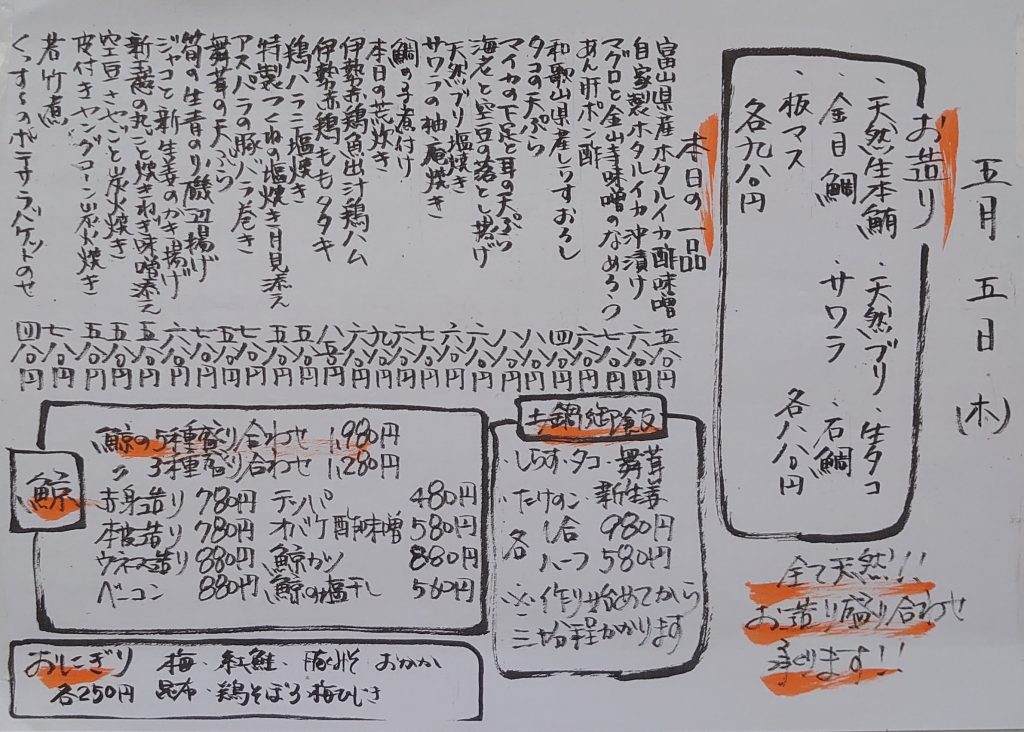 五月五日(木)
お造り
・天然生本鮪 ・天然ブリ ・生タコ
・金目鯛 ・サワラ ・石鯛
各八八〇円
・板マス
各九八〇円
全て天然!!
お造り盛り合わせ
承ります!!
本日の一品
富山県産ホタルイカ酢味噌 五八〇円
自家製ホタルイカ沖漬け 六八〇円
マグロと金山寺味噌のなめろう 七八〇円
あん肝ポン酢 六八〇円
和歌山県産しらすおろし 四八〇円
タコの天ぷら 八八〇円
マイカの下足と耳の天ぷら 八八〇円
海老と空豆の落とし揚げ 六八〇円
天然ブリ塩焼き 六八〇円
サワラの柚庵焼き 七八〇円
鯛の子煮付け 六八〇円
本日の荒炊き 九八〇円
伊勢赤鶏魚出汁鶏ハム 六八〇円
伊勢赤鶏ももタタキ
鶏ハラミ塩焼き 五八〇円
特製つくねの塩焼き月見添え 五八〇円
アスパラの豚バラ巻き
舞茸の天ぷら
筍の生青のり磯辺揚げ 七八〇円
ジャコと新生姜のかき揚げ 六八〇円
新玉葱の丸ごと炊きねぎ味噌添え 五八〇円
空豆さやごと炭火焼き 五八〇円
皮付きヤングコーン炭火焼き 五八〇円
若竹煮 七八〇円
くっすんのポテサラバケットのせ 四八〇円
土鍋御飯
・しらす・タコ・舞茸
・たけのこ・新生姜
各 一合 980円
ハーフ 580円
※作り始めてから
三十分程かかります
鯨
鯨の5種盛り合わせ 1,980円
〃 3種盛り合わせ 1,280円
赤身造り 780円 テッパ 480円
本皮造り 780円 オバケ酢味噌 580円
ウネス造り 880円 鯨カツ 880円
ベーコン 880円 鯨の塩干し 560円
おにぎり 梅・紅鮭・豚みそ おかか
各250円 昆布・鶏そぼろ 梅ひじき